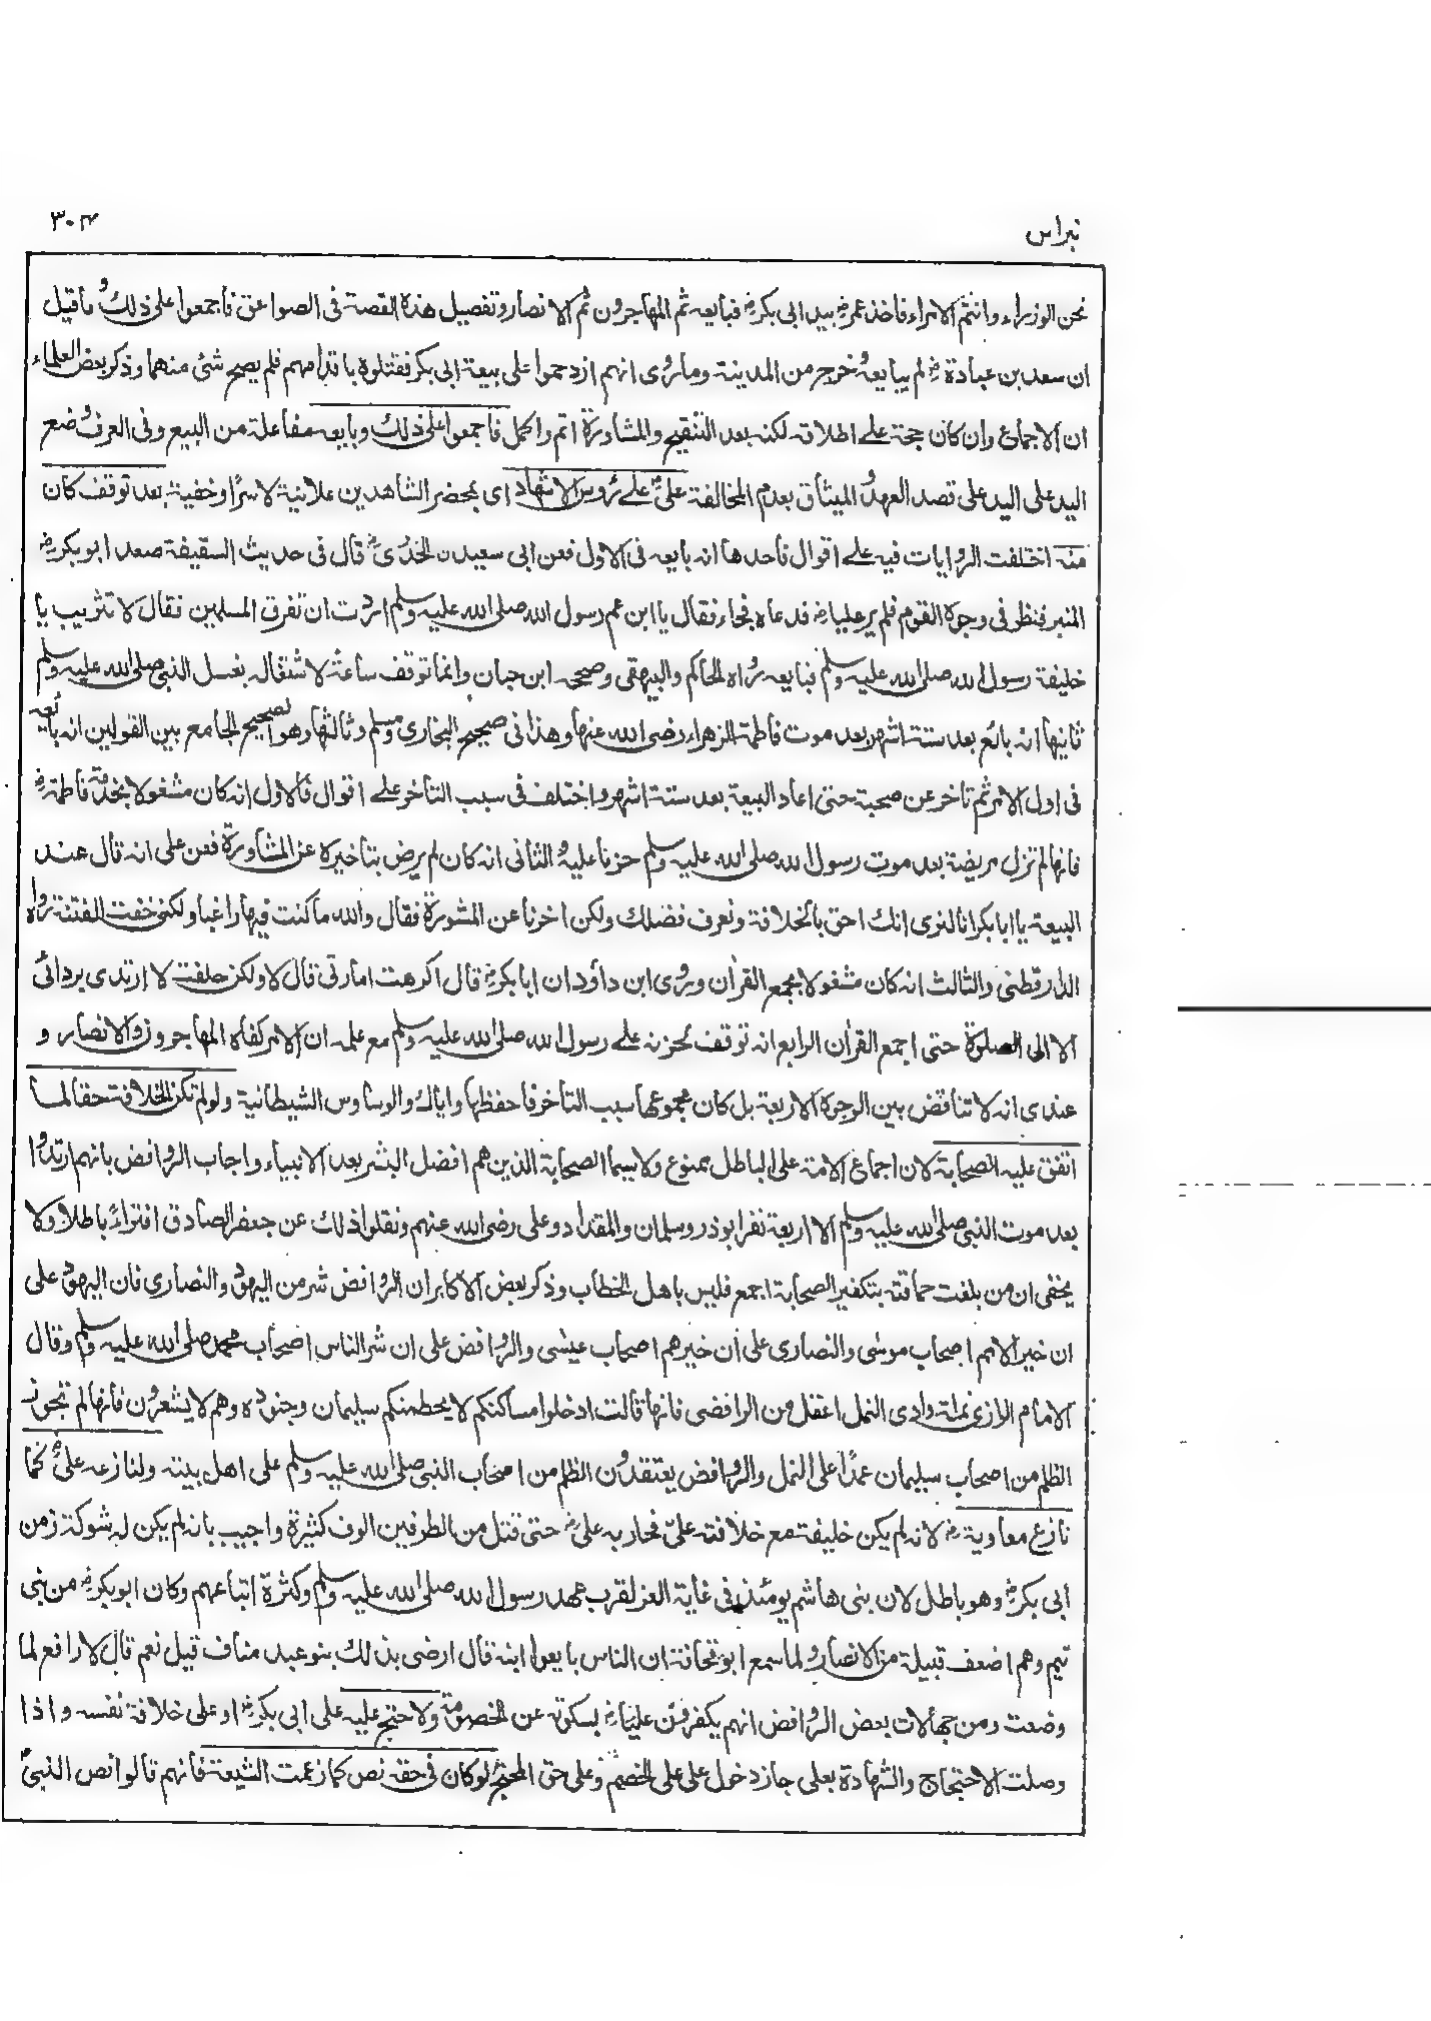 نبراس
۳۰۴
نحن الوزراء وانتم الامراء فاخذ عمرؓ بید ابی بکرؓ فبایعہ ثم المهاجرون ثم الانصار وتفصیل هذه القصة فی الصواعق فاجمعوا علی ذلك و ماقیل
ان سعد بن عبادةؓ لم یبایعہ و خرج من المدینة وماروی انهم ازدحموا علی بیعة ابی بکر فقتلوہ باقدامهم فلم یصح شئ منهما وذکر بعض العلماء
ان الاجماع وان کان حجة علے اطلاقہ لکنہ بعد التنقیح والمشاورة اتم واکمل فاجمعوا علی ذلك وبایعہ مفاعلة من البیع وفی العرف وضع
الید علی الید علی قصد العهد و المیثاق بعدم المخالفة علیؓ علے رؤس الاشهاد ای بمحضر الشاهدین علانیة لا سرًا وخفیة بعد توقف کان
منہ اختلفت الروایات فیہ علے اقوال فاحدها انہ بایعہ فی الاول فعن ابی سعید ن الخدریؓ قال فی حدیث السقیفة صعد ابوبکرؓ
المنبر فنظر فی وجوہ القوم فلم یر علیاؓ فدعاہ فجاء فقال یا ابن عم رسول الله صلی الله علیہ وسلم اردت ان تفرق المسلمین فقال لا تثریب یا
خلیفة رسول الله صلی الله علیہ وسلم فبایعہ رواہ الحاکم والبیهقی وصححہ ابن حبان وانما توقف ساعة لاشتغالہ بغسل النبی صلی الله علیہ وسلم
ثانیها انہ بائع بعد ستة اشهر بعد موت فاطمة الزهراء رضی الله عنها وهذا فی صحیح البخاری ومسلم وثالثها وهو الصحیح الجامع بین القولین انہ بایعہ
فی اول الامر ثم تاخر عن صحبتہ حتی اعاد البیعة بعد ستة اشهر واختلف فی سبب التاخر علے اقوال فالاول انہ کان مشغولا بخدمة فاطمةؓ
فانها لم تزل مریضة بعد موت رسول الله صلی الله علیہ وسلم حزنا علیہ و الثانی انہ کان لم یرض بتاخیرہ عن المشاورة فعن علی انہ قال عند
البیعة یا ابابکر انا لنری انك احق بالخلافة ونعرف فضلك ولکن اخرنا عن المشورة فقال والله ما کنت فیها راغبا ولکنی خفت الفتنة رواہ
الدارقطنی والثالث انہ کان مشغولا بجمع القراٰن وروی ابن داؤد ان ابابکرؓ قال اکرهت امارتی قال لا ولکن حلفت لا ارتدی بردائی
الا الی الصلوٰة حتی اجمع القراٰن الرابع انہ توقف لحزنہ علے رسول الله صلی الله علیہ وسلم مع علمہ ان الامر کفاہ المهاجرون والانصار و
عندی انہ لا تناقض بین الوجوہ الاربعة بل کان مجموعها سبب التاخر فاحفظها وایاك والوساوس الشیطانیة ولو لم تکن الخلافة حقا لما
اتفق علیہ الصحابة لان اجماع الامة علی الباطل ممنوع ولا سیما الصحابة الذین هم افضل البشر بعد الانبیاء واجاب الروافض بانهم ارتدوا
بعد موت النبی صلی الله علیہ وسلم الا اربعة نفر ابوذر وسلمان والمقداد وعلی رضی الله عنهم ونقلوا ذلك عن جعفر الصادق افتراءً باطلا ولا
یخفی ان من بلغت حماقتہ بتکفیر الصحابة اجمع فلیس باهل الخطاب وذکر بعض الاکابر ان الروافض شر من الیهود والنصاری فان الیهود علی
ان خیر الامم اصحاب موسٰی والنصاری علی ان خیرهم اصحاب عیسٰی والروافض علی ان شر الناس اصحاب محمد صلی الله علیہ وسلم وقال
الامام الرازی نملة وادی النمل اعقل من الرافضی فانها قالت ادخلوا مساکنکم لا یحطمنکم سلیمان وجنودہ وهم لا یشعرون فانها لم تجوز
الظلم من اصحاب سلیمان عمدًا علی النمل والروافض یعتقدون الظلم من اصحاب النبی صلی الله علیہ وسلم علی اهل بیتہ ولنازعہ علیؓ کما
نازع معاویةؓ لانہ لم یکن خلیفة مع خلافتہ علیؓ فحاربہ علیؓ حتی قتل من الطرفین الوف کثیرة واجیب بانہ لم یکن لہ شوکة زمن
ابی بکرؓ وهو باطل لان بنی هاشم یومئذ فی غایة العز لقرب عهد رسول الله صلی الله علیہ وسلم وکثرة اتباعهم وکان ابوبکرؓ من بنی
تیم وهم اضعف قبیلة من الانصار ولما سمع ابو قحافة ان الناس بایعوا ابنہ قال ارضی بذلك بنو عبد مناف قیل نعم قال لا رافع لما
وضعت ومن جهالات بعض الروافض انهم یکفرون علیاؓ بسکوتہ عن الخصومة ولا حتج علیہ علی ابی بکرؓ او علی خلافة نفسہ واذا
وصلت الاحتجاج والشهادة بعلی جاز دخول علی علی الخصم وعلی حق المحتج لو کان فی حقہ نص کما زعمت الشیعة فانهم قالوا نص النبیؐ